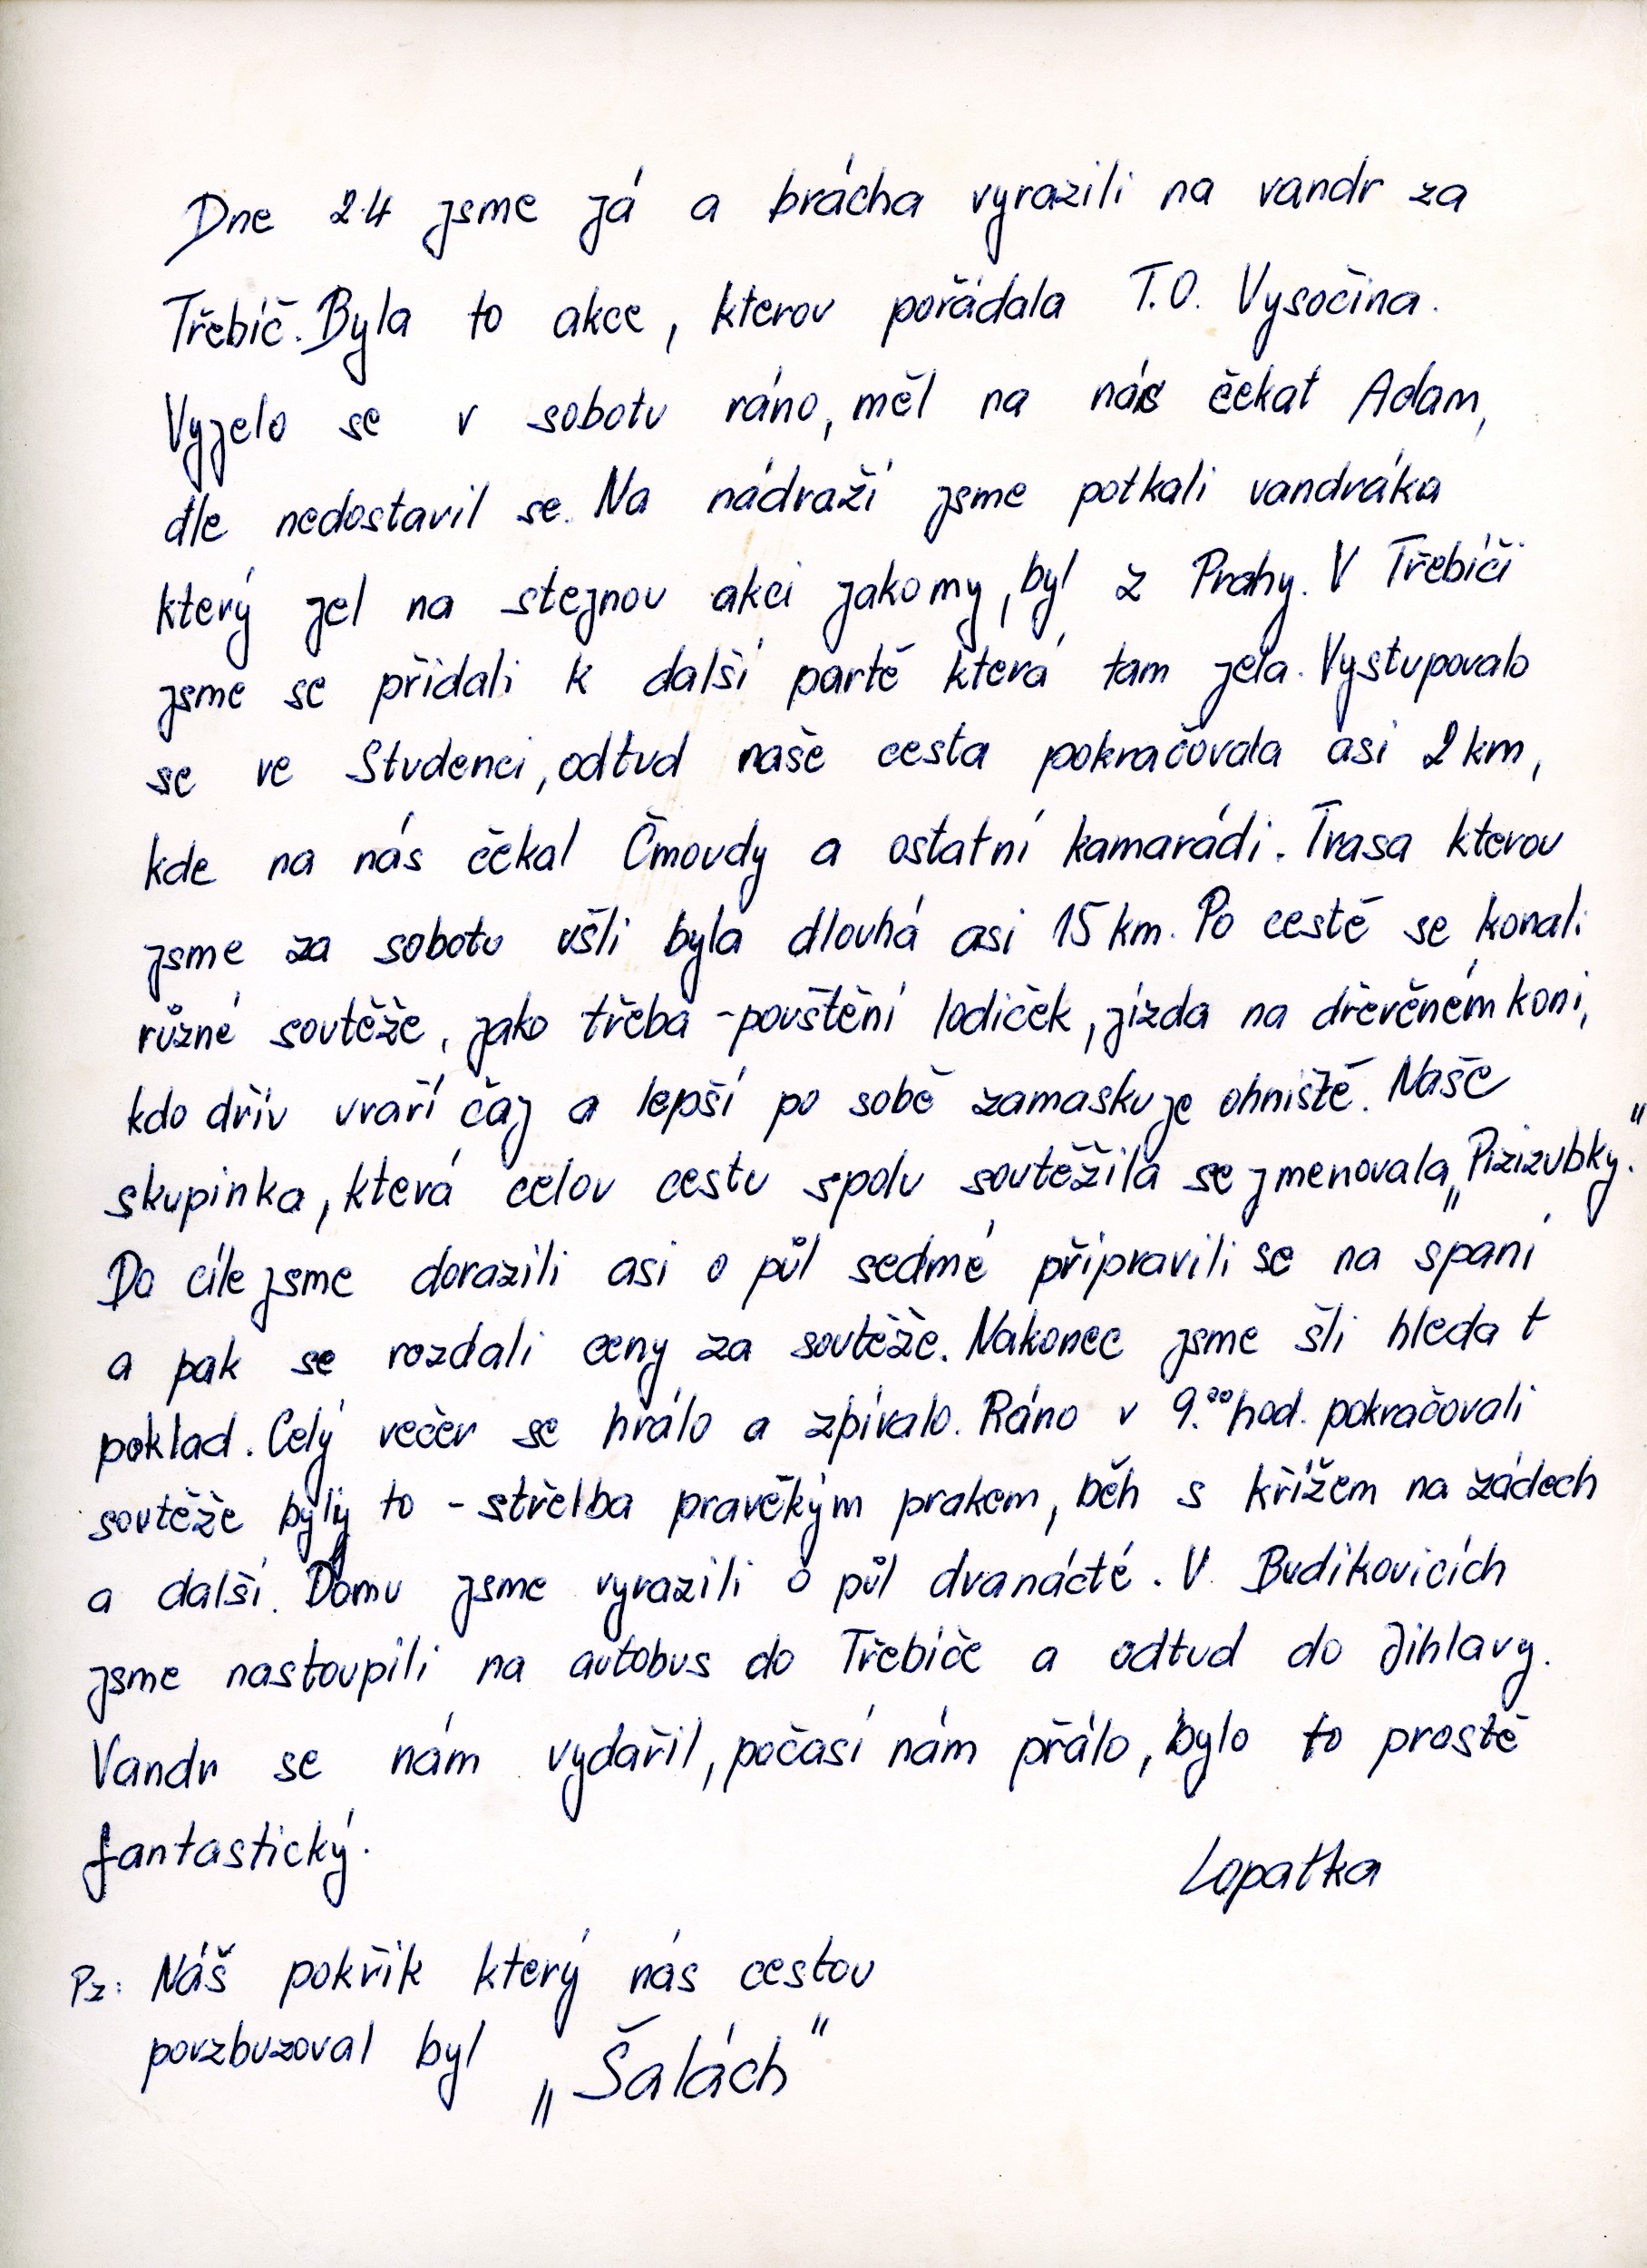 Dne 2.4 jsme já a brácha vyrazili na vandr za
Třebíč. Byla to akce, kterou pořádala T.O. Vysočina.
Vyjelo se v sobotu ráno, měl na nás čekat Adam,
dle nedostavil se. Na nádraží jsme potkali vandráka
který jel na stejnou akci jako my, byl z Prahy. V Třebíči
jsme se přidali k další partě která tam jela. Vystupovalo
se ve Studenci, odtud naše cesta pokračovala asi 2 km,
kde na nás čekal Čmoudy a ostatní kamarádi. Trasa kterou
jsme za sobotu ušli byla dlouhá asi 15 km. Po cestě se konali
různé soutěže, jako třeba - pouštění lodiček, jízda na dřevěném koni,
kdo dřív uvaří čaj a lepší po sobě zamaskuje ohniště. Naše
skupinka, která celou cestu spolu soutěžila se jmenovala „Pizizubky."
Do cíle jsme dorazili asi o půl sedmé připravili se na spaní
a pak se rozdali ceny za soutěže. Nakonec jsme šli hledat
poklad. Celý večer se hrálo a zpívalo. Ráno v 9.00 hod. pokračovali
soutěže byly to - střelba pravěkým prakem, běh s křížem na zádech
a další. Domu jsme vyrazili o půl dvanácté. V Budikovicích
jsme nastoupili na autobus do Třebíče a odtud do Jihlavy.
Vandr se nám vydařil, počasí nám přálo, bylo to prostě
fantastický.
Lopatka
Pz: Náš pokřik který nás cestou
povzbuzoval byl „Šalách"